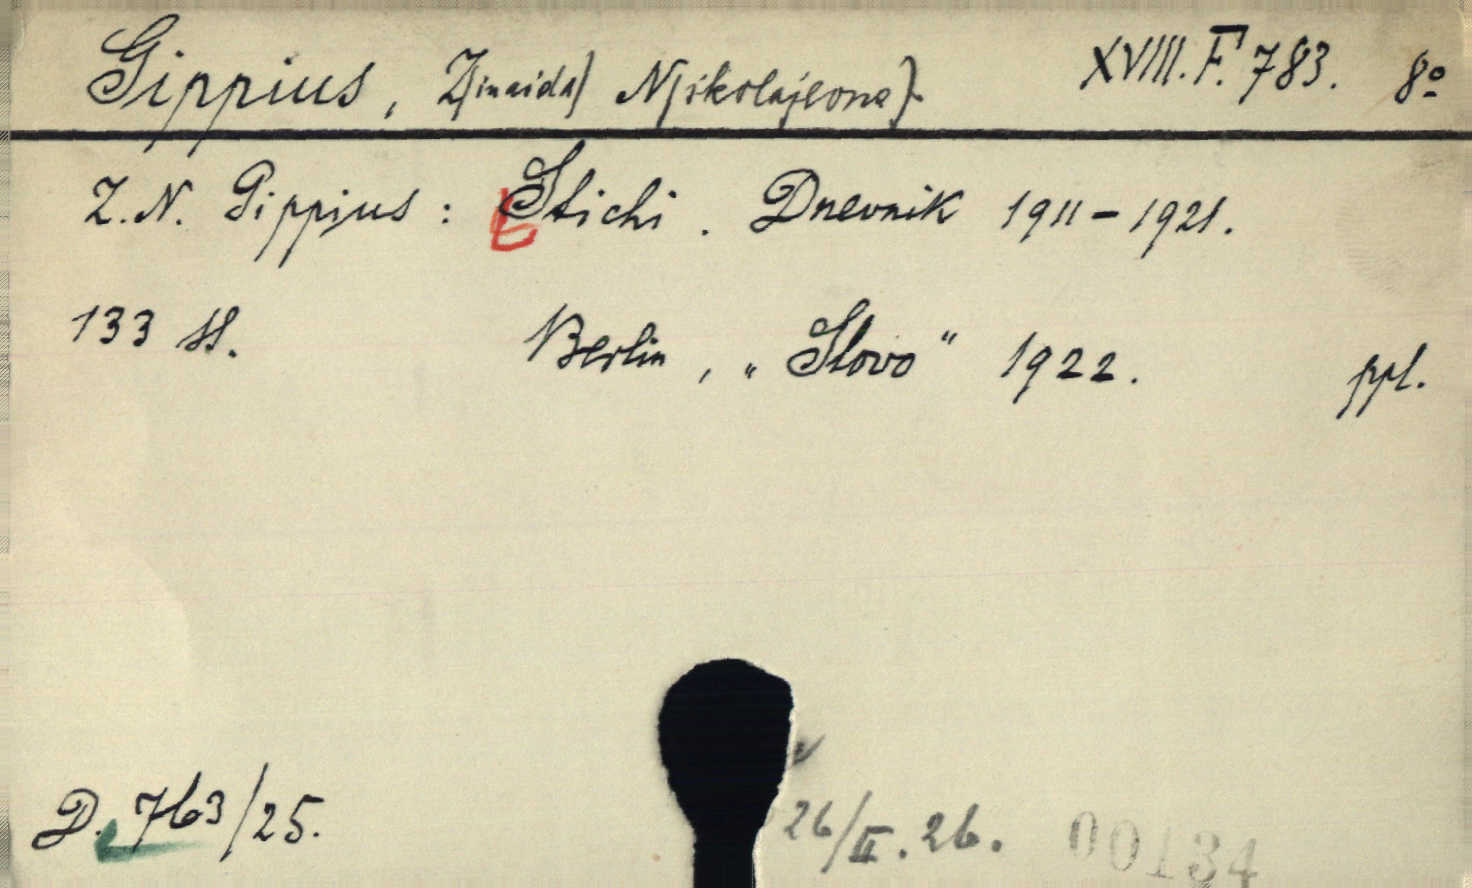 Gippius, Z(inaida) N(ikolajevna). XVIII. F. 783. 8º
Z. N. Gippius : Stichi. Dnevnik 1911 – 1921.
133 SS. Berlin, „Slovo“ 1922. ppl.
D. 763/25. 26/II. 26. 00134